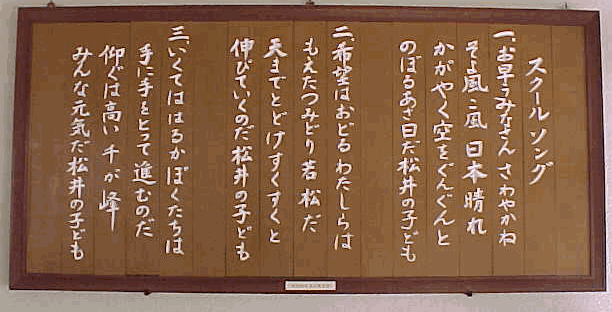 スクールソング
一、お早うみなさん さわやかね
そよ風こ風 日本晴れ
かがやく空をぐんぐんと
のぼるあさ日だ松井の子ども
二、希望はおどる わたしらは
もえたつみどり 若松だ
天までとどけすくすくと
伸びていくのだ松井の子ども
三、いくてははるか ぼくたちは
手に手をとって進むのだ
仰ぐは高い 千が峰
みんな元気だ松井の子ども